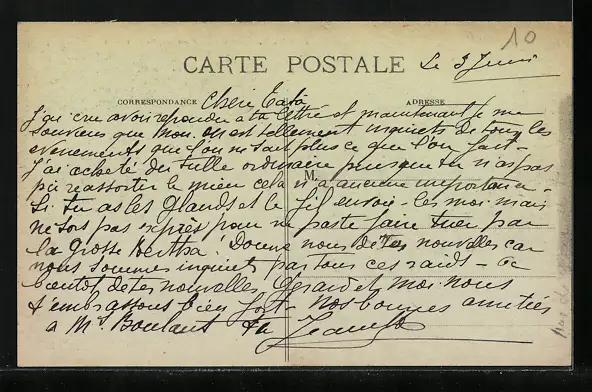 10
CARTE POSTALE Le 3 Juin
CORRESPONDANCE ADRESSE
Chère Tata
J'ai cru avoir répondu à ta lettre et maintenant je me
souviens que non. On est tellement inquiets de tous les
évènements que l'on ne sait plus ce que l'on fait -
J'ai acheté du tulle ordinaire puisque tu n'as pas
pu réassortir le mien cela n'a aucune importance -
M.
Si tu as les glands et le fil envoie-les moi mais
ne sors pas exprès pour ne pas te faire tuer par
la grosse Bertha! Donne nous de tes nouvelles car
nous sommes inquiets par tous ces raids - à
bientôt de tes nouvelles, Gérard et moi nous
t'embrassons bien fort - Nos bonnes amitiés
à Mr Boulant Ta